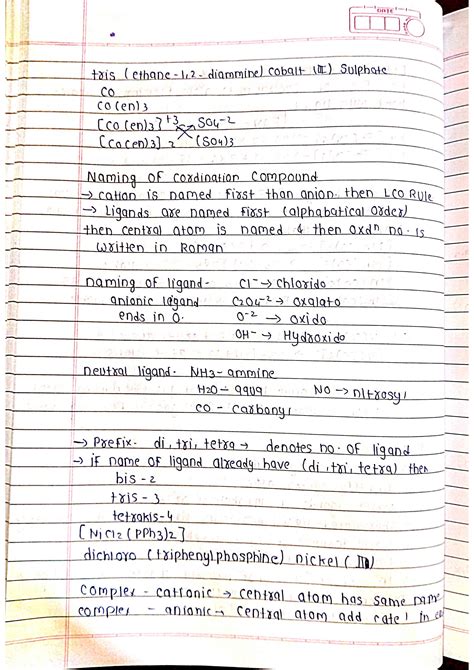 DATE
tris (ethane-1,2-diammine) cobalt (III) Sulphate
CO
CO(en)3
[CO(en)3]+3 SO4-2
[CO(en)3]2 (SO4)3
Naming of cordination compound
→ cation is named first than anion then LCO RULE
→ Ligands are named first (alphabatical order)
then central atom is named & then oxdn no. is
written in Roman
naming of ligand- Cl- → chlorido
anionic legand C2O4-2 → oxalato
ends in O. O-2 → oxido
OH- → Hydroxido
neutral ligand- NH3-ammine
H2O - aqua NO → nitrosyl
CO - carbonyl
→ Prefix- di, tri, tetra → denotes no. of ligand
→ if name of ligand already have (di, tri, tetra) then
bis-2
tris-3
tetrakis-4
[NiCl2(PPh3)2]
dichloro (triphenylphosphine) nickel (II)
complex - cationic → central atom has same name
complex - anionic → central atom add 'ate' in